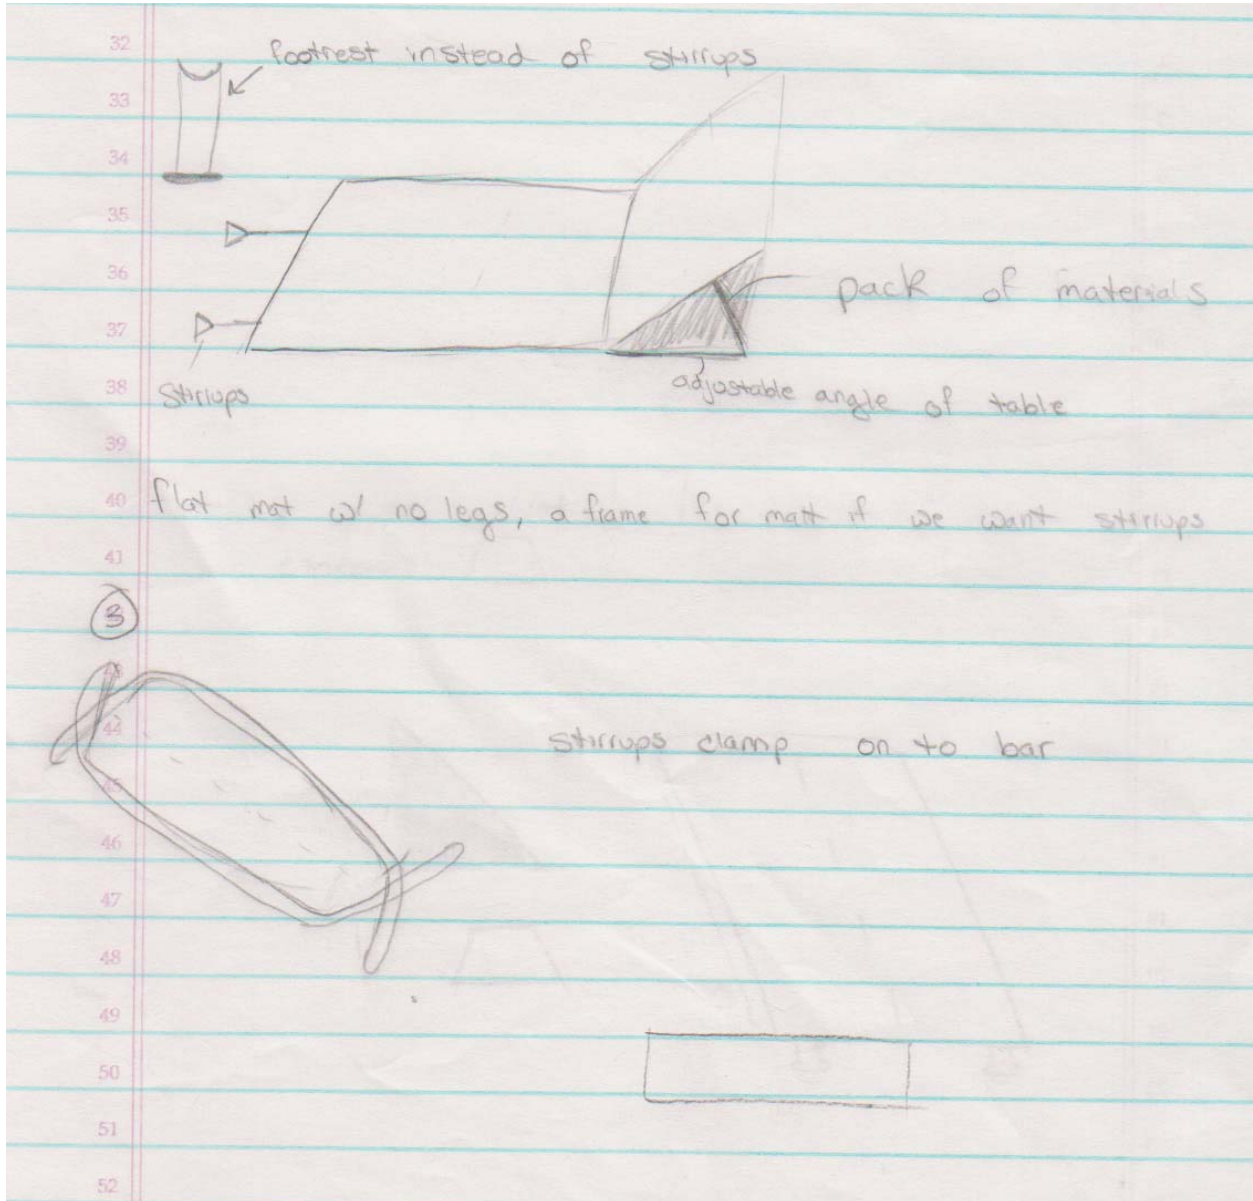 32
footrest instead of stirrups
33
34
35
36
pack of materials
37
38
Stirrups
adjustable angle of table
39
40
flat mat w/ no legs, a frame for matt if we want stirrups
41
3
43
44
stirrups clamp on to bar
45
46
47
48
49
50
51
52